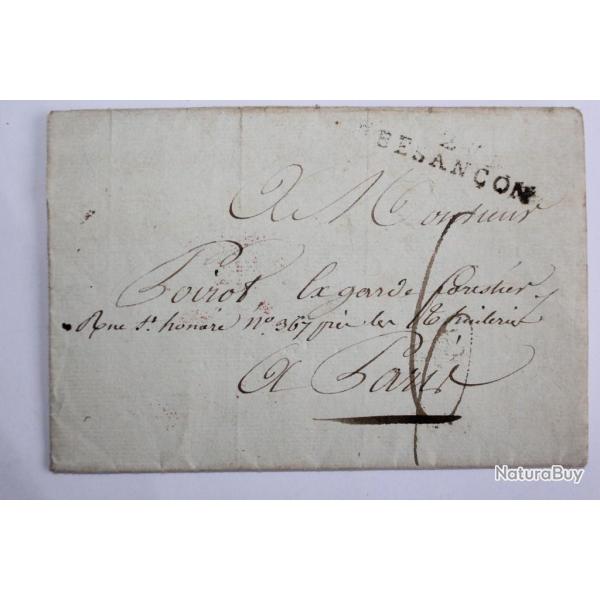 BESANÇON
A Monsieur
Poirot Ex garde forestier
Rue St. honoré No. 367 près les
A Paris
6
NaturaBuy